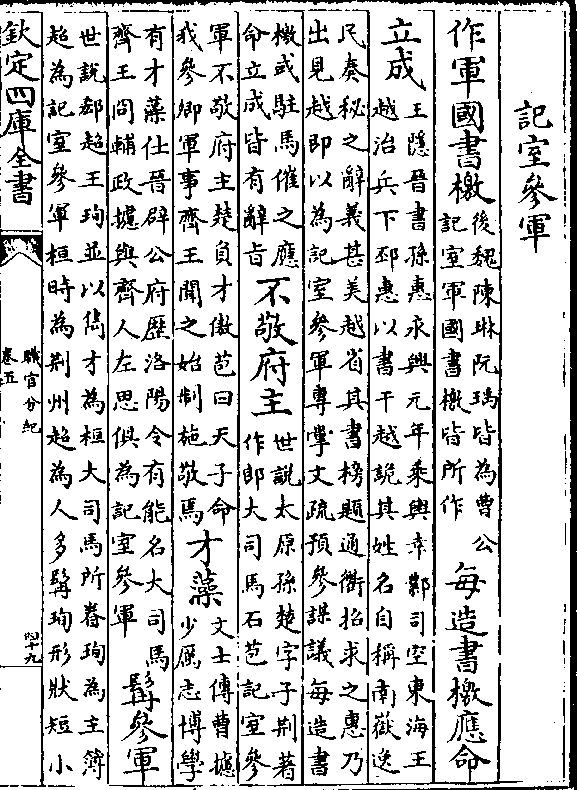 記室參軍
作軍國書檄
後魏陳琳阮瑀皆為曹公
記室軍國書檄皆所作
每造書檄應命
立成
王隱晉書孫惠永興元年乘輿幸鄴司空東海王
越治兵下邳惠以書干越詭其姓名自稱南嶽逸
民奏秘之辭義甚美越省其書榜題通衢招求之惠乃
出見越即以為記室參軍專掌文疏預參謀議每造書
檄或駐馬催之應
命立成皆有辭旨
不敬府主
世說太原孫楚字子荆著
作郎大司馬石苞記室參
軍不敬府主楚負才傲苞曰天子命
我參卿軍事齊王聞之始制施敬焉
才藻
文士傳曹攄
少厲志博學
有才藻仕晉辟公府歷洛陽令有能名大司馬
齊王冏輔政攄與齊人左思俱為記室參軍
髯參軍
世說郗超王珣並以儁才為桓大司馬所眷珣為主簿
超為記室參軍桓時為荆州超為人多髯珣形狀短小
欽定四庫全書
職官分紀
卷五
四十九